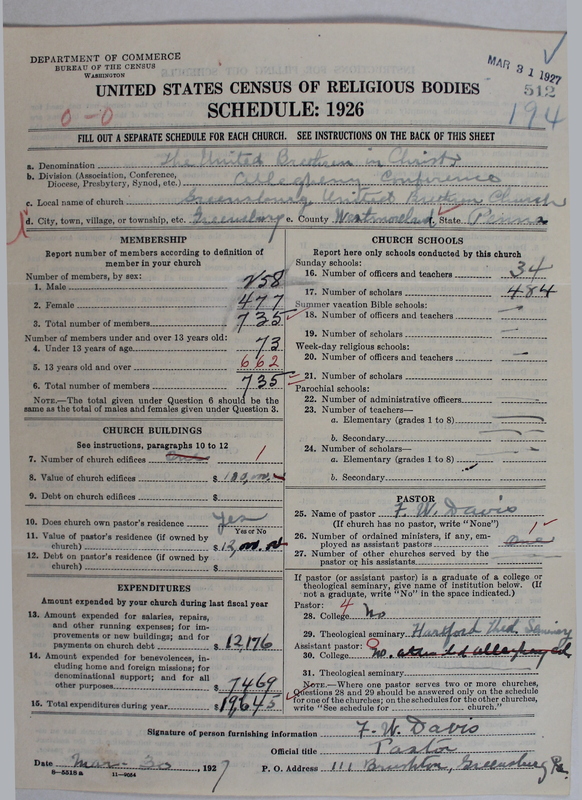 DEPARTMENT OF COMMERCE
BUREAU OF THE CENSUS
WASHINGTON
MAR 31 1927
512
194
UNITED STATES CENSUS OF RELIGIOUS BODIES
SCHEDULE: 1926
0-0
FILL OUT A SEPARATE SCHEDULE FOR EACH CHURCH. SEE INSTRUCTIONS ON THE BACK OF THIS SHEET
a. Denomination The United Brethren in Christ
b. Division (Association, Conference, Diocese, Presbytery, Synod, etc.) Allegheny Conference
c. Local name of church Greensburg United Brethren Church
d. City, town, village, or township, etc. Greensburg e. County Westmoreland, State Penna
MEMBERSHIP
Report number of members according to definition of member in your church
Number of members, by sex:
1. Male 258
2. Female 477
3. Total number of members 735
Number of members under and over 13 years old:
4. Under 13 years of age 73
5. 13 years old and over 662
6. Total number of members 735
NOTE.—The total given under Question 6 should be the same as the total of males and females given under Question 3.
CHURCH BUILDINGS
See instructions, paragraphs 10 to 12
7. Number of church edifices 1
8. Value of church edifices $
9. Debt on church edifices $
10. Does church own pastor's residence yes
Yes or No
11. Value of pastor's residence (if owned by church) $ 12,000.00
12. Debt on pastor's residence (if owned by church) $
EXPENDITURES
Amount expended by your church during last fiscal year
13. Amount expended for salaries, repairs, and other running expenses; for improvements or new buildings; and for payments on church debt $ 12176
14. Amount expended for benevolences, including home and foreign missions; for denominational support; and for all other purposes $ 7469
15. Total expenditures during year $ 19645
CHURCH SCHOOLS
Report here only schools conducted by this church
Sunday schools:
16. Number of officers and teachers 34
17. Number of scholars 484
Summer vacation Bible schools:
18. Number of officers and teachers —
19. Number of scholars —
Week-day religious schools:
20. Number of officers and teachers —
21. Number of scholars —
Parochial schools:
22. Number of administrative officers —
23. Number of teachers—
a. Elementary (grades 1 to 8) —
b. Secondary —
24. Number of scholars—
a. Elementary (grades 1 to 8) —
b. Secondary
PASTOR
25. Name of pastor F. W. Davis
(If church has no pastor, write "None")
26. Number of ordained ministers, if any, employed as assistant pastors 1
27. Number of other churches served by pastor or his assistants —
If pastor (or assistant pastor) is a graduate of a college or theological seminary, give name of institution below. (If not a graduate, write "No" in the space indicated.)
Pastor: 4
28. College No
29. Theological seminary Hartford Theo. Seminary
Assistant pastor: 0
30. College No.
31. Theological seminary
NOTE.—Where one pastor serves two or more churches, Questions 28 and 29 should be answered only on the schedule for one of the churches; on the schedules for the other churches, write "See schedule for church."
Signature of person furnishing information F. W. Davis
Official title Pastor
Date Mar- 30, 1927
P. O. Address 111 Brushton, Greensburg Pa.
8-5518a 11-9054